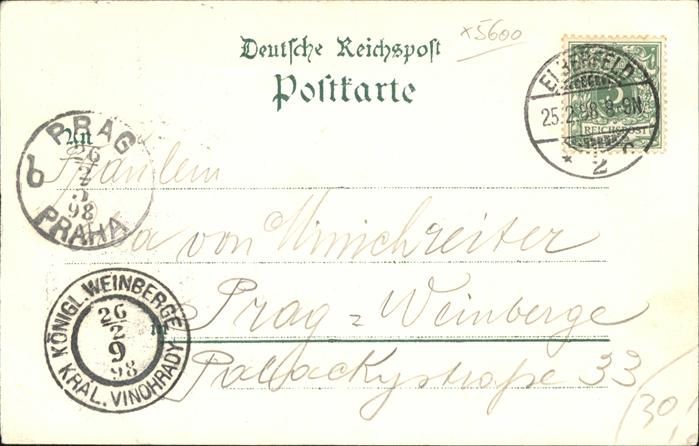 x5600
Deutsche Reichspost
Postkarte
ELBERFELD
25.2.98 8-9N
* 2 c
5
REICHSPOST
An
PRAG
26
2
5
98
PRAHA
6
Fräulein
von
Prag = Weinberge
in
Palackystraße 33
KÖNIGL. WEINBERGE
26
2
9
98
KRÁL. VINOHRADY
(30,